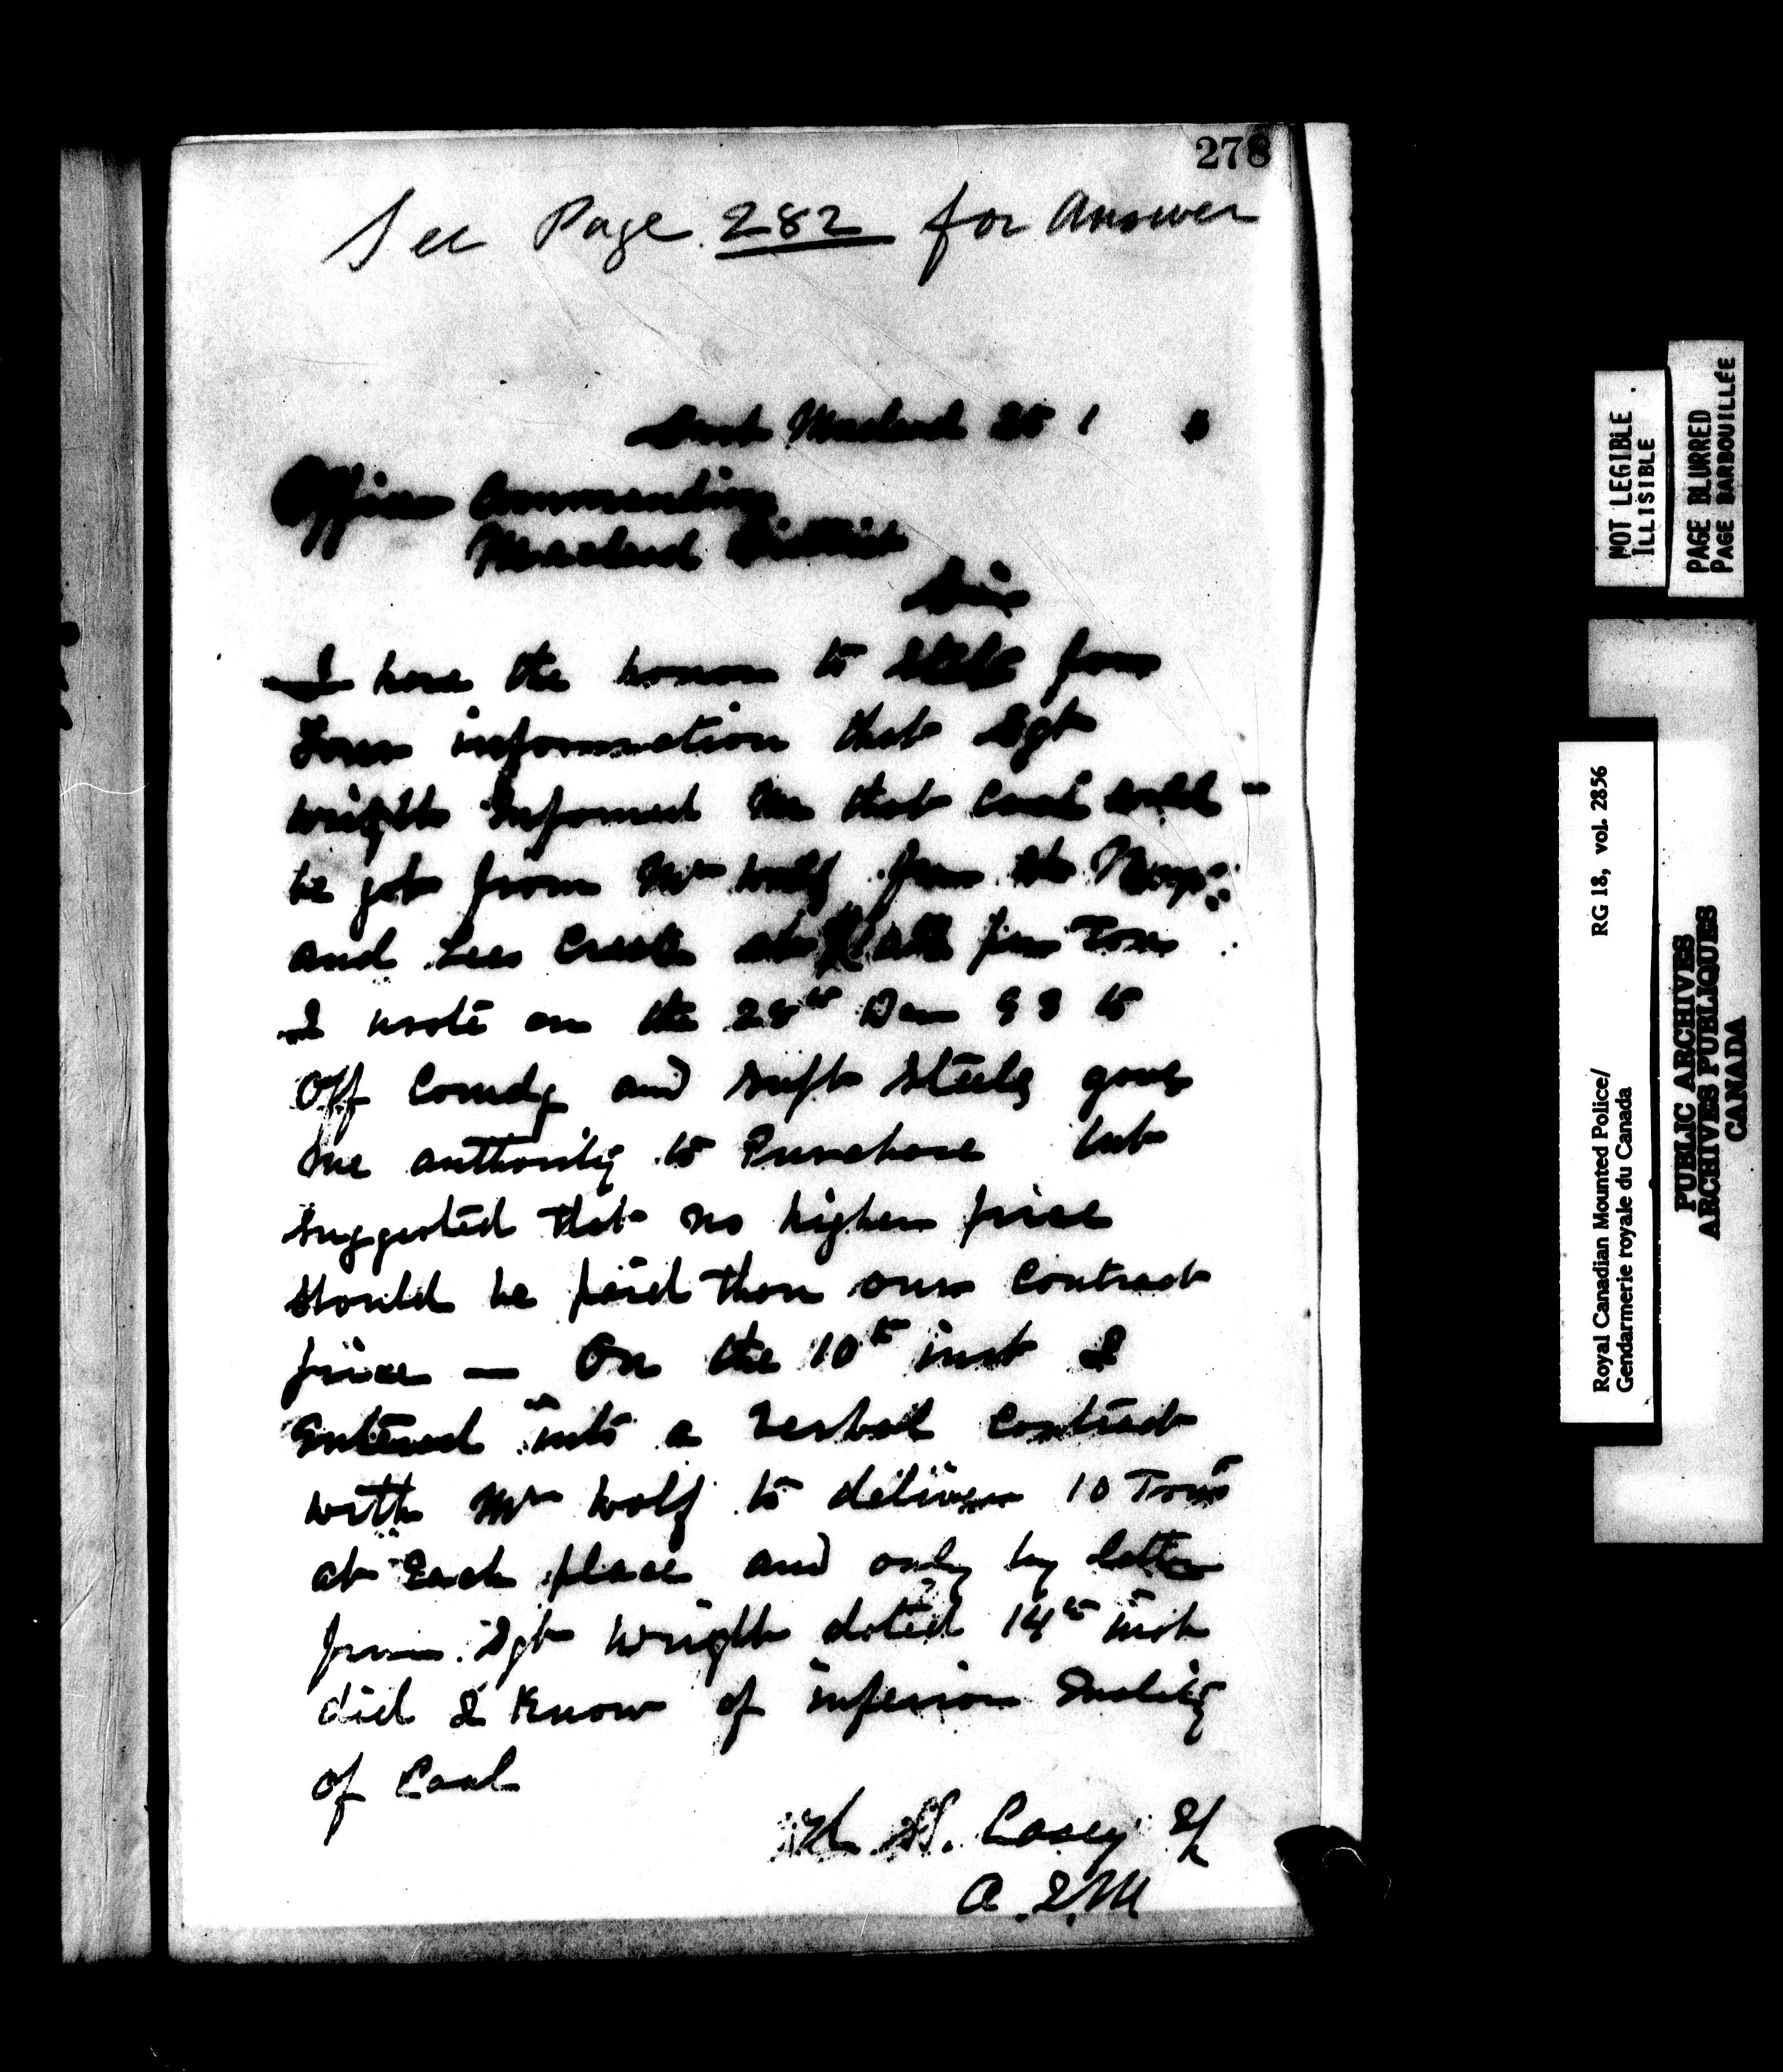 278
See Page 282 for Answer
Macleod 25 1
Officer Commanding
Macleod District
Sir
I have the honor to state for
Your information that Sgt
Wright Informed Me that Coal could
be got from Mr Wolf for the
and Lees Creek at per Ton
I wrote on the 28th Dec 93 to
Off Comdg and Supt Steele gave
me authority to Purchase but
suggested that no higher price
should be paid than our Contract
price — On the 10th inst I
Entered into a Verbal Contract
with Mr Wolf to deliver 10 Tons
at Each place and only by letter
from Sgt Wright dated 14th inst
did I Know of inferior Quality
of Coal
H. Casey
A.Q.M
NOT LEGIBLE
ILLISIBLE
PAGE BLURRED
PAGE BARBOUILLÉE
Royal Canadian Mounted Police/ RG 18, vol. 2856
Gendarmerie royale du Canada
PUBLIC ARCHIVES
ARCHIVES PUBLIQUES
CANADA